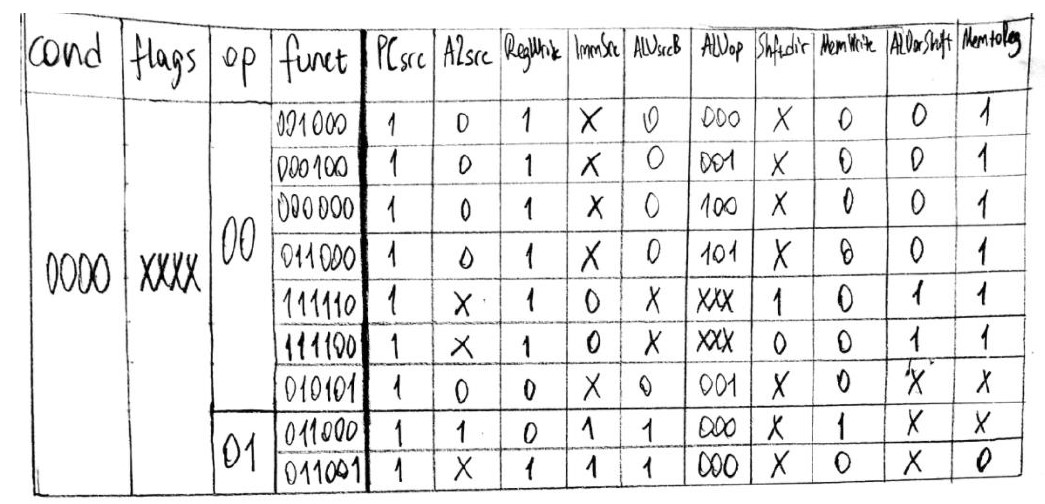 cond flags op funct PCsrc A2src RegWrite ImmSrc ALUsrcB ALUop Shftdir MemWrite ALUorShift MemtoReg
0000 XXXX 00 001000 1 0 1 X 0 000 X 0 0 1
000100 1 0 1 X 0 001 X 0 0 1
000000 1 0 1 X 0 100 X 0 0 1
011000 1 0 1 X 0 101 X 0 0 1
111110 1 X 1 0 X XXX 1 0 1 1
111100 1 X 1 0 X XXX 0 0 1 1
010101 1 0 0 X 0 001 X 0 X X
01 011000 1 1 0 1 1 000 X 1 X X
011001 1 X 1 1 1 000 X 0 X 0